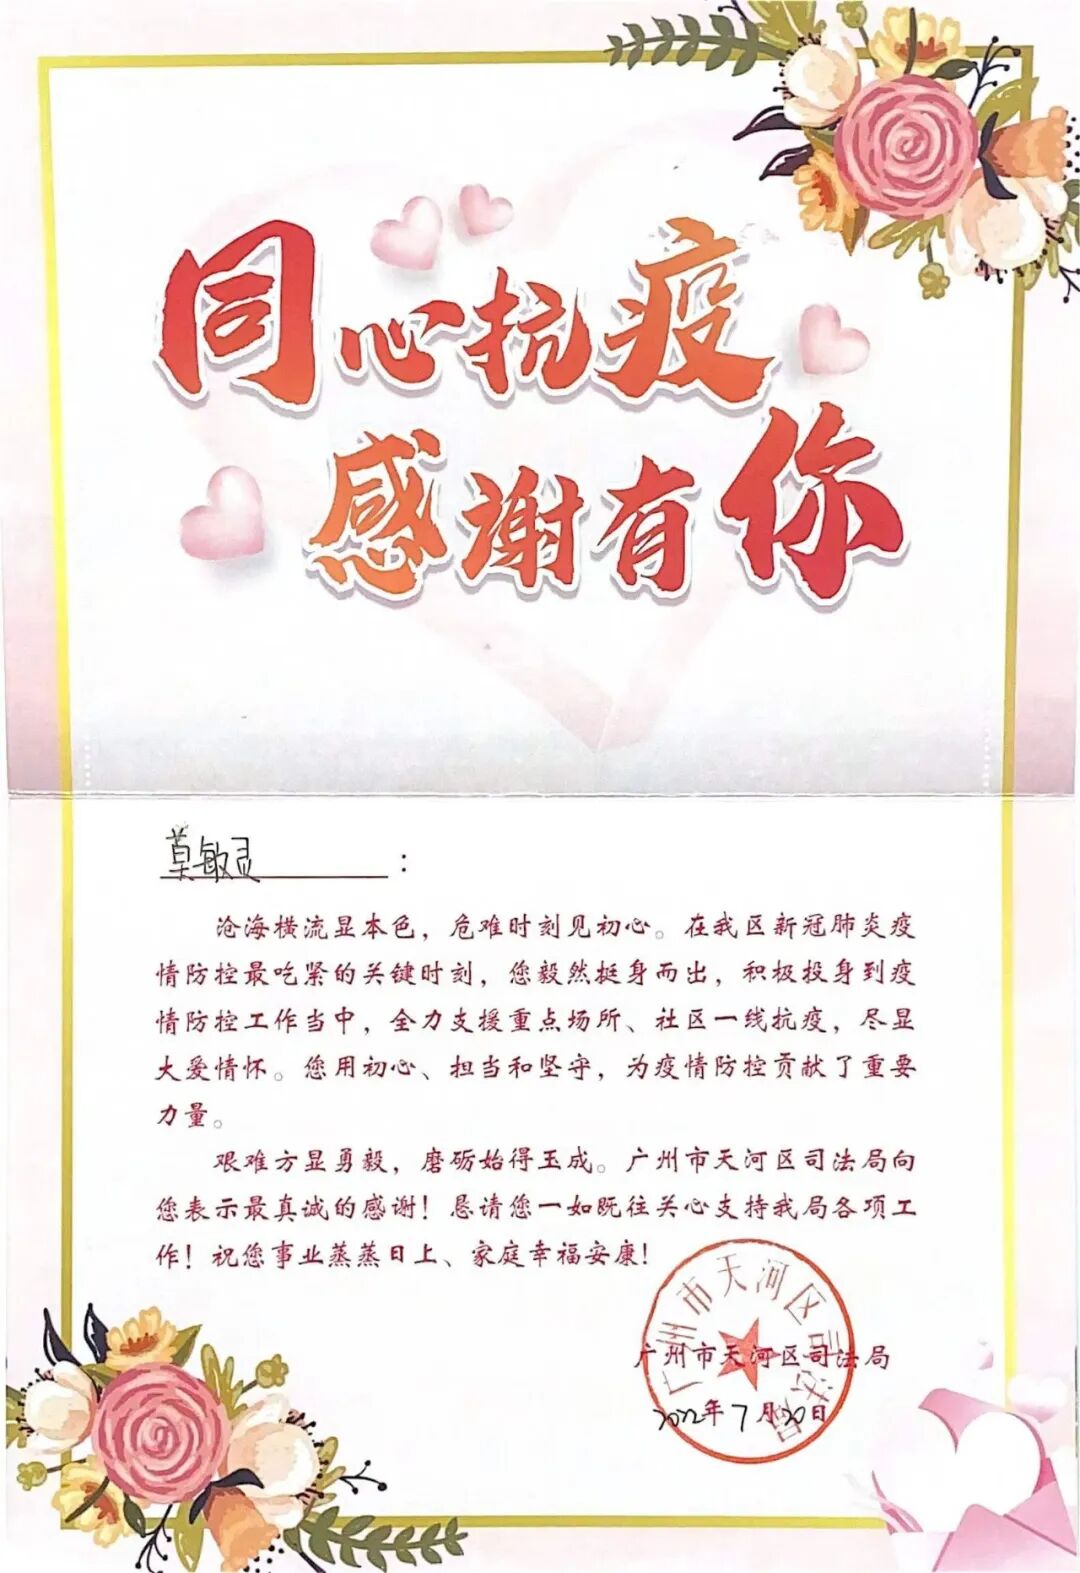 同心抗疫
感谢有你
莫敏灵:
沧海横流显本色，危难时刻见初心。在我区新冠肺炎疫
情防控最吃紧的关键时刻，您毅然挺身而出，积极投身到疫
情防控工作当中，全力支援重点场所、社区一线抗疫，尽显
大爱情怀。您用初心、担当和坚守，为疫情防控贡献了重要
力量。
艰难方显勇毅，磨砺始得玉成。广州市天河区司法局向
您表示最真诚的感谢！恳请您一如既往关心支持我局各项工
作！祝您事业蒸蒸日上、家庭幸福安康！
广州市天河区司法局
广州市天河区司法局
2022年7月20日